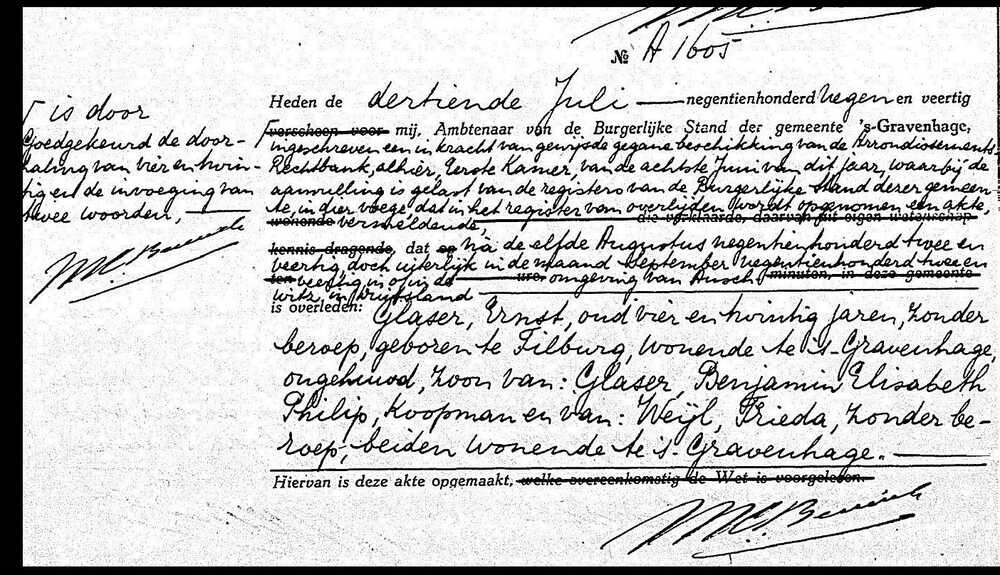 № A 1605
Heden de dertiende Juli — negentienhonderd negen en veertig
is door
verscheen voor mij, Ambtenaar van de Burgerlijke Stand der gemeente 's-Gravenhage,
Goedgekeurd de door-
haling van vier en twin-
tig en de invoeging van
twee woorden,
ingeschreven een in kracht van gewijsde gegane beschikking van de Arrondissements-
Rechtbank, alhier, Eerste Kamer, van de achtste Juni van dit jaar, waarbij de
aanvulling is gelast van de registers van de Burgerlijke Stand dezer gemeen-
te, in dier voege dat in het register van overlijden wordt opgenomen een akte,
wonende vermeldende, die verklaarde, daarvan uit eigen wetenschap
kennis dragende, dat op na de elfde Augustus negentienhonderd twee en
veertig, doch uiterlijk in de maand September negentienhonderd twee en
ten veertig, in of in de ure omgeving vanAusch- minuten, in deze gemeente
witz, in Duitsland
is overleden: Glaser, Ernst, oud vier en twintig jaren, zonder
beroep, geboren te Tilburg, wonende te 's-Gravenhage,
ongehuwd, zoon van: Glaser, Benjamin Elisabeth
Philip, Koopman en van: Weijl, Frieda, zonder be-
roep, beiden wonende te 's-Gravenhage.
Hiervan is deze akte opgemaakt, welke overeenkomstig de Wet is voorgelezen.